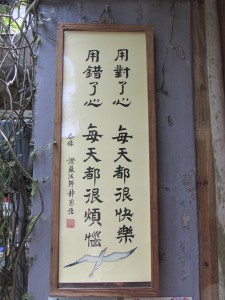 用對了心 每天都很快樂
用錯了心 每天都很煩惱